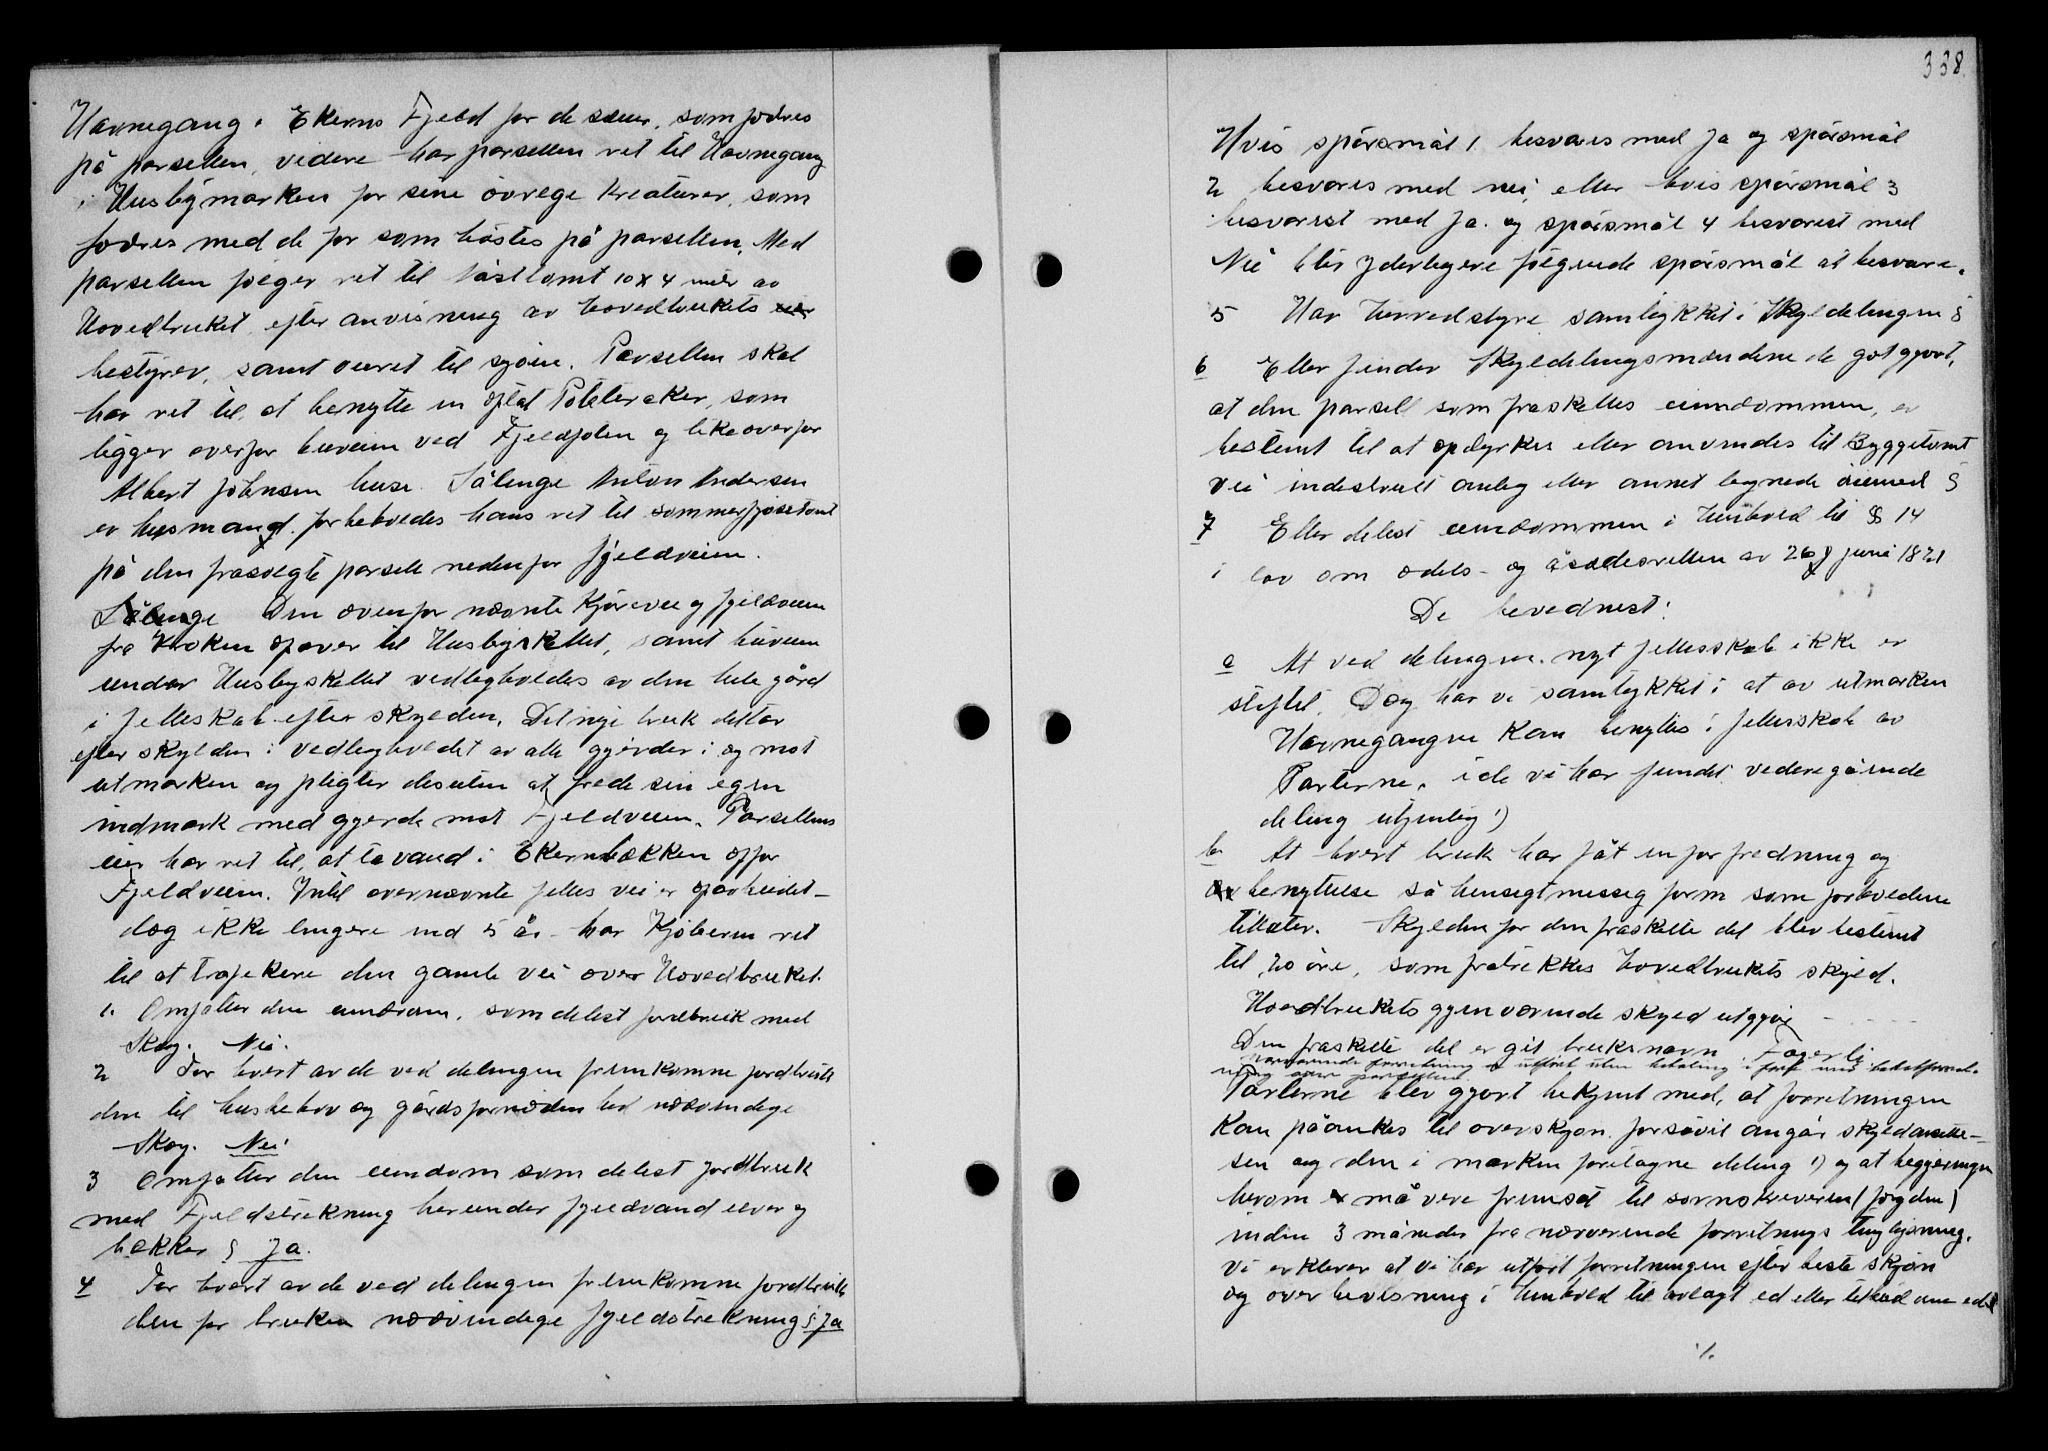 Havnegang i Ekerns Fjeld for de sæuer, som fodres
på parsellen, videre har parsellen ret til Havnegang
i Husbymarken for sine øvrege kreaturer, som
fodres med de for som høstes på parsellen. Med
parsellen følger ret til 10 x 4 meter av
Hovedbruket efter anvisning av hovedbrukets
bestyrer, samt veiret til sjøen. Parsellen skal
har ret til, at benytte en Poteteraker, som
ligger overfor huveien ved Fjeldfolen og likeoverfor
Albert Johnsen huse. Sålenge Anton Andersen
er husmand forbeholdes hans ret til sommerfjøstomt
på den frasolgte parsell nedenfor fjeldveien.
Sålenge Den ovenfor nævnte Kjørevei og fjeldveien
fra Kroken opover til Husbyskellet, samt huveien
under Husbyskellet vedligholdes av den hele gård
i felleskab efter skylden. Det nye bruk deltar
efter skylden i vedligholdet av alle gjerder i og mot
utmarken og pligter desuten at frede sin egen
indmark med gjerde mot Fjeldveien. Parsellens
eier har ret til, at ta vand i Ekernbækken opfor
Fjeldveien. Intil overnævnte felles vei er oparbeidet -
dog ikke lengere end 5 år - har Kjøberen ret
til at trafekere den gamle vei over Hovedbruket.
1. Omfatter den eiendom, som delest jordbruk med
Skog. Nei.
2 Far hvert av de ved delingen fremkomne jordbruk
den til husbehov og gårdsfornøden hed nødvendige
Skog. Nei
3 Omfatter den eiendom som delest jordbruk
med Fjeldstrekning herunder fjeldvand elver og
bekker § Ja.
4 Far hvert av de ved delingen fremkomne jordbruk
den for bruken nødvindige fjeldstrekning § Ja
338.
Hvis spörsmål 1 besvares med Ja og spörsmål
2 besvares med nei, eller hvis spörsmål 3
besvarest med Ja. og spörsmål 4 besvarest med
Nei blir yderligere følgende spörsmål at besvare.
5 Har herredstyre samtykket i Skyldelingen §
6 Eller finder Skyldelingsmændene de gotgjort,
at den parsell som fraskilles eiendommen, er
bestemt til at opdyrkes eller anvendes til Byggetomt
vei indestrielt anleg eller annet lignede øiemed §
7 Eller delest eiendommen i henhold til § 14
i lov om odels- og åsædesretten av 26 juni 1821
De bevednest:
a At ved delingen nyt fellesskab ikke er
stiftet. Dog har vi samtykket i at av utmarken
Havnegangen kan benyttes i fellesskab av
Parterne, i de vi har fundet videregående
deling utjenlig !)
b. At hvert bruk har fåt en for fredning og
benyttelse så hensigtmessig form som forholdene
tillater. Skylden for den fraskilte del blev bestemt
til 20 öre, som fratrekkes hovedbrukets skyld.
Hovedbrukets gjenværende skyld utgjør -
Den fraskilte del er git bruksnavn Fagerli
nærværende forretning er utført uten betaling i
Parterne blev gjort bekjent med, at forretningen
Kan påankes til overskjøn forsåvit angår skyldansettel-
sen og den i marken foretagne deling !) og at begjæringen
herom må vere fremsat til sornskriveren (fogden)
inden 3 måneder fra nærværende forretnings tinglysning.
Vi erklerer at vi har utført forretningen efter beste skjøn
og overbevisning i henhold til avlagt ed eller tilbud om ed
·/.